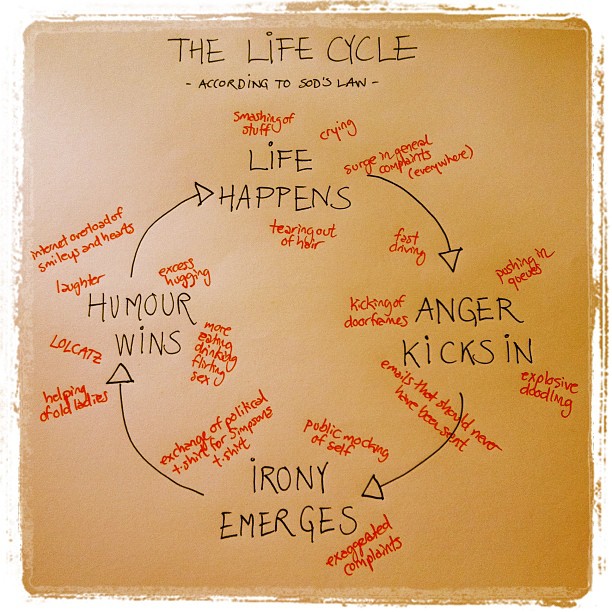 THE LIFE CYCLE
- ACCORDING TO SOD'S LAW -
smashing of
stuff
crying
LIFE
HAPPENS
surge in general
complaints
(everywhere)
tearing out
of hair
fast
driving
pushing in
queues
kicking of
doorframes
ANGER
KICKS IN
explosive
doodling
emails that should never
have been sent
public mocking
of self
IRONY
EMERGES
exaggerated
complaints
exchange of political
t.shirt for Simpsons
t.shirt
internet overload of
smileys and hearts
laughter
excess
hugging
HUMOUR
WINS
LOLCATZ
more
eating
drinking
flirting
sex
helping
of old ladies